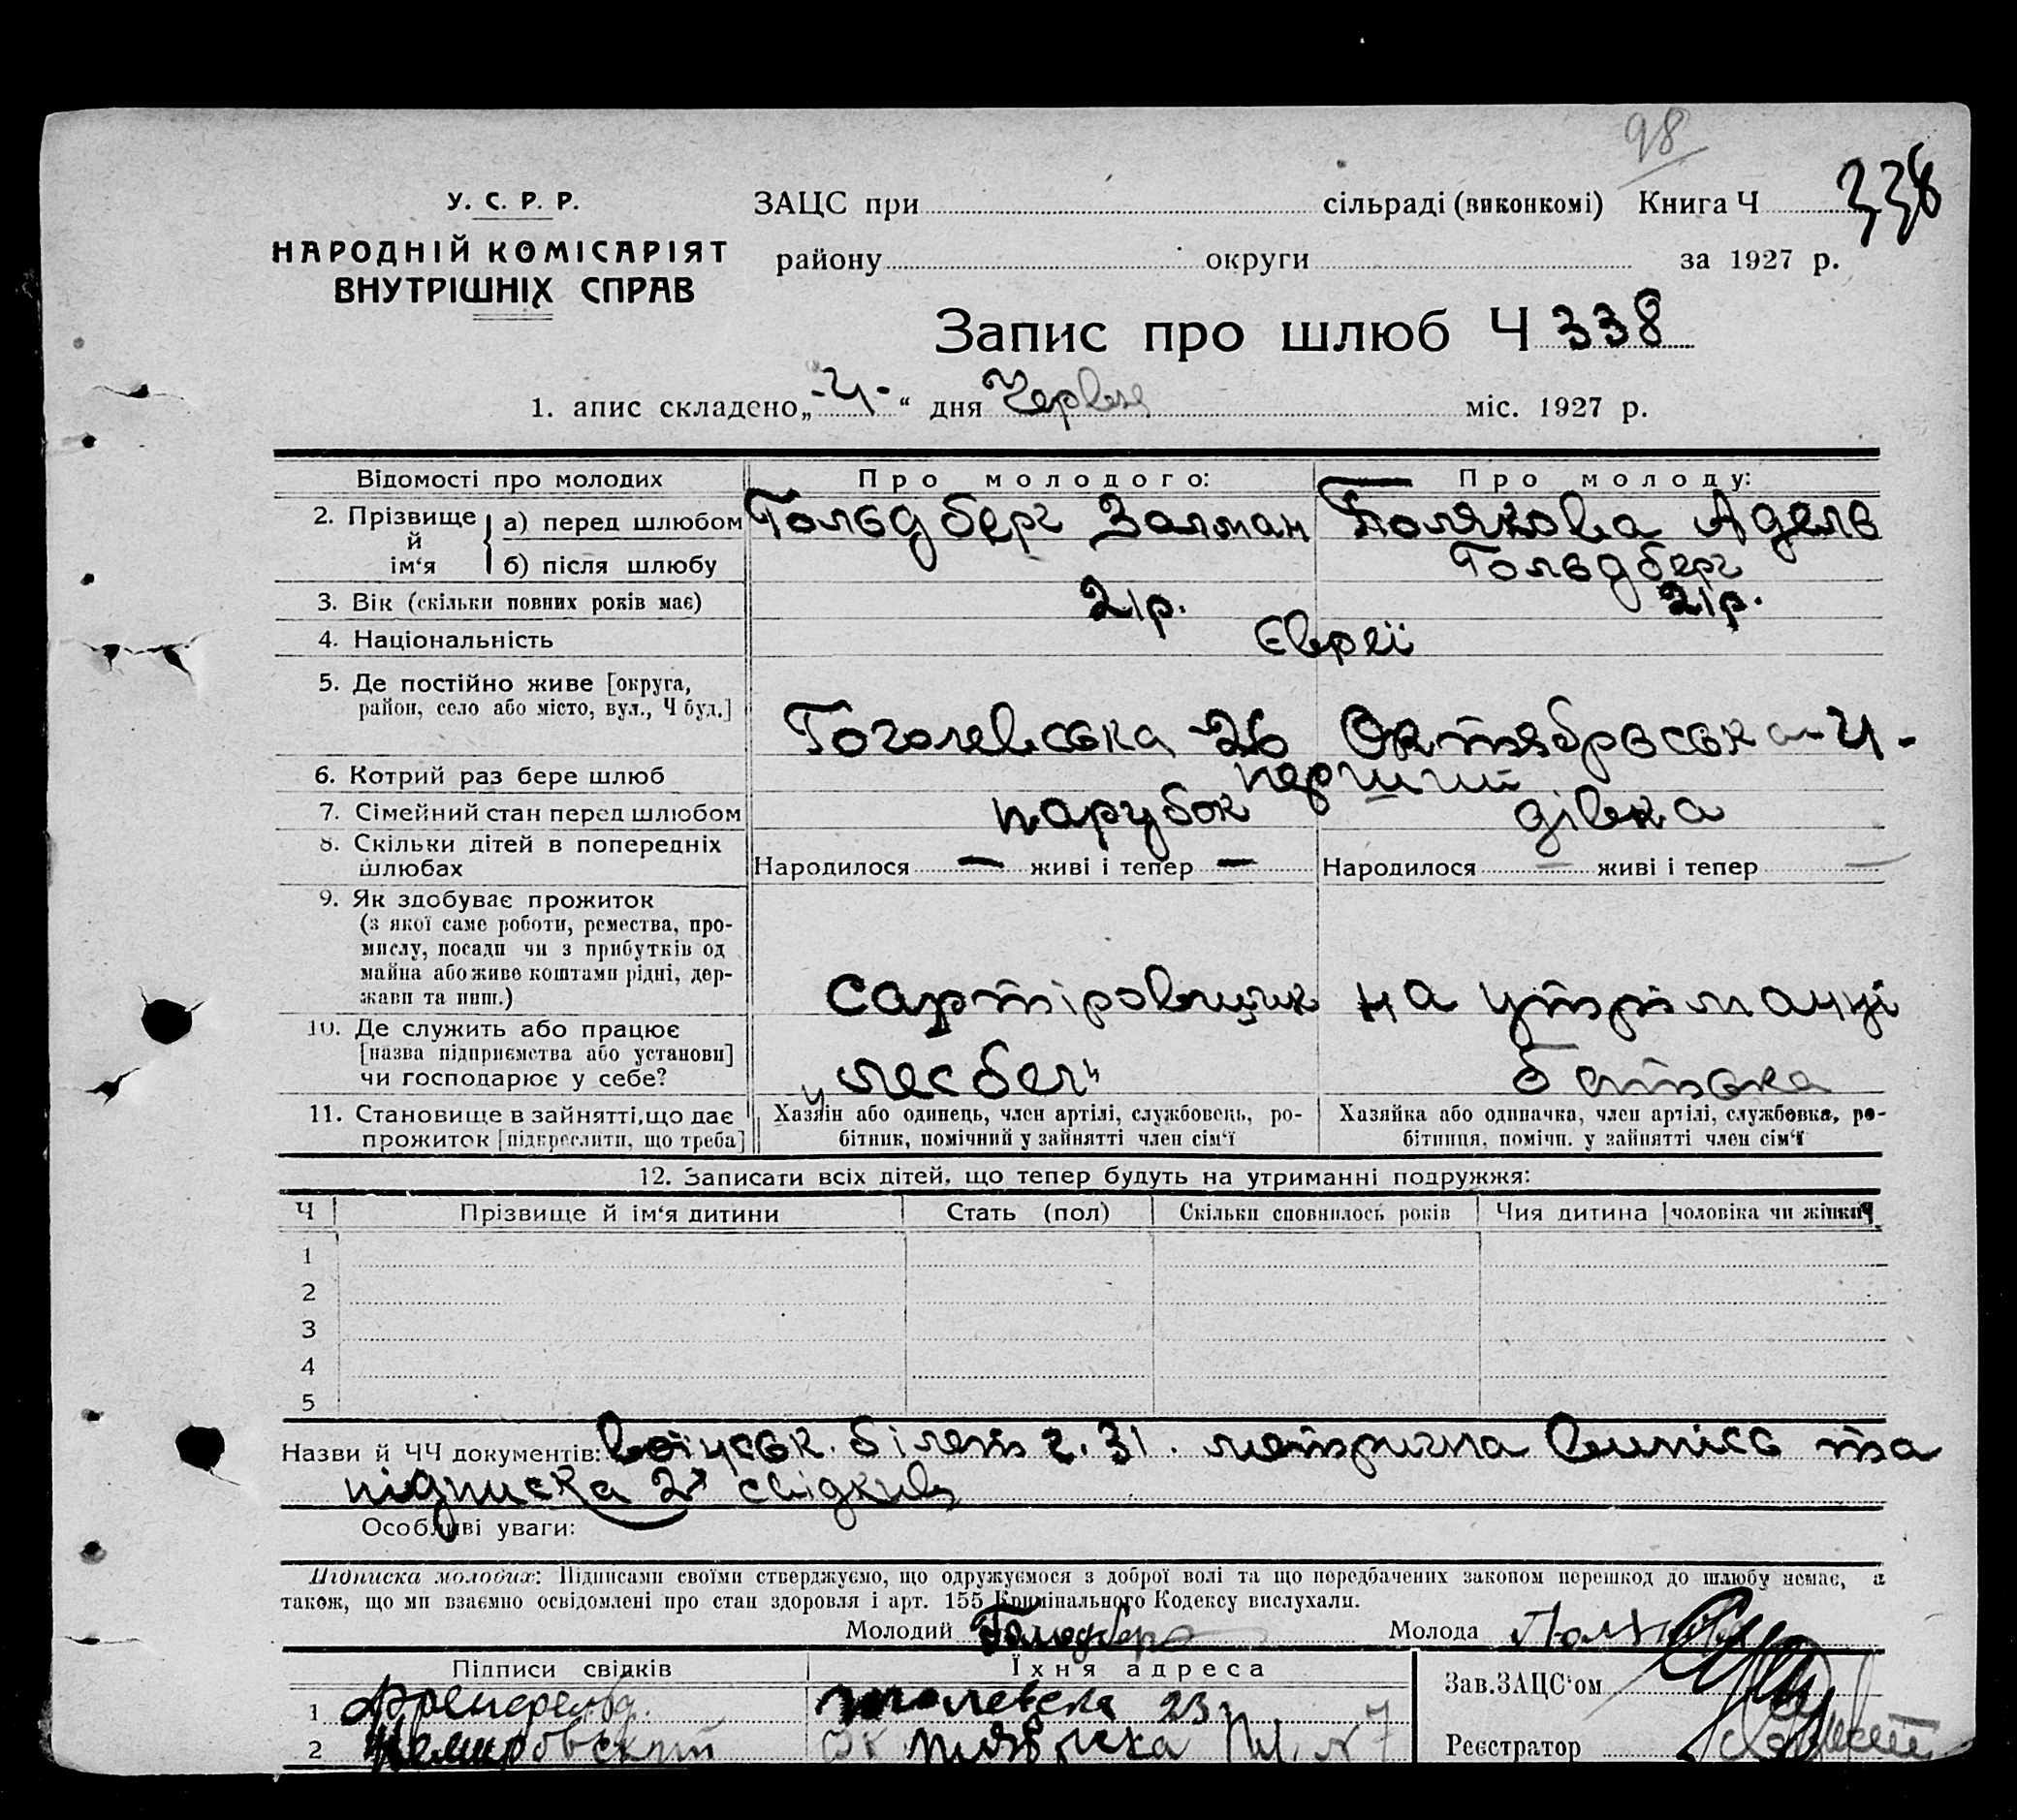 98
У. С. Р. Р.
НАРОДНІЙ КОМІСАРІЯТ
ВНУТРІШНІХ СПРАВ
ЗАЦС при сільраді (виконкомі) Книга Ч 338
району округи за 1927 р.
Запис про шлюб Ч 338
1. апис складено „ “ дня Червня міс. 1927 р.
Відомості про молодих Про молодого: Про молоду:
2. Прізвище й ім‘я а) перед шлюбом Гольдберг Залман Полякова Адель
б) після шлюбу Гольдберг
3. Вік (скільки повних років має) 21р. 21р.
4. Національність Євреї
5. Де постійно живе [округа,
район, село або місто, вул., Ч буд.] Гоголевська 26 Октябрьська
6. Котрий раз бере шлюб перший
7. Сімейний стан перед шлюбом парубок дівка
8. Скільки дітей в попередніх
шлюбах Народилося — живі і тепер — Народилося — живі і тепер —
9. Як здобуває прожиток
(з якої саме роботи, ремества, про-
мислу, посади чи з прибутків од
майна або живе коштами рідні, дер-
жави та инш.) сартіровщик на утріманці
10. Де служить або працює
[назва підприємства або установи]
чи господарює у себе? „лесбел“ батька
11. Становище в зайнятті, що дає
прожиток [підкреслити, що треба]
Хазяїн або одинець, член артілі, службовець, ро-
бітник, помічний у зайнятті член сім‘ї
Хазяйка або одиначка, член артілі, службовка, ро-
бітниця, помічн. у зайнятті член сім‘ї
12. Записати всіх дітей, що тепер будуть на утриманні подружжя:
Ч Прізвище й ім‘я дитини Стать (пол) Скільки сповнилось років Чия дитина [чоловіка чи жінки]
1
2
3
4
5
Назви й ЧЧ документів: воїнськ. білет г. 31. метрична випісь та
підписка 2х свідків
Особливі уваги:
Підписка молодих: Підписами своїми стверджуємо, що одружуємося з доброї волі та що передбачених законом перешкод до шлюбу немає, а
також, що ми взаємно освідомлені про стан здоровля і арт. 155 Кримінального Кодексу вислухали.
Молодий Гольдберг Молода
Підписи свідків Їхня адреса
Зав.ЗАЦС‘ом
1 23
2 Немировский
Реєстратор